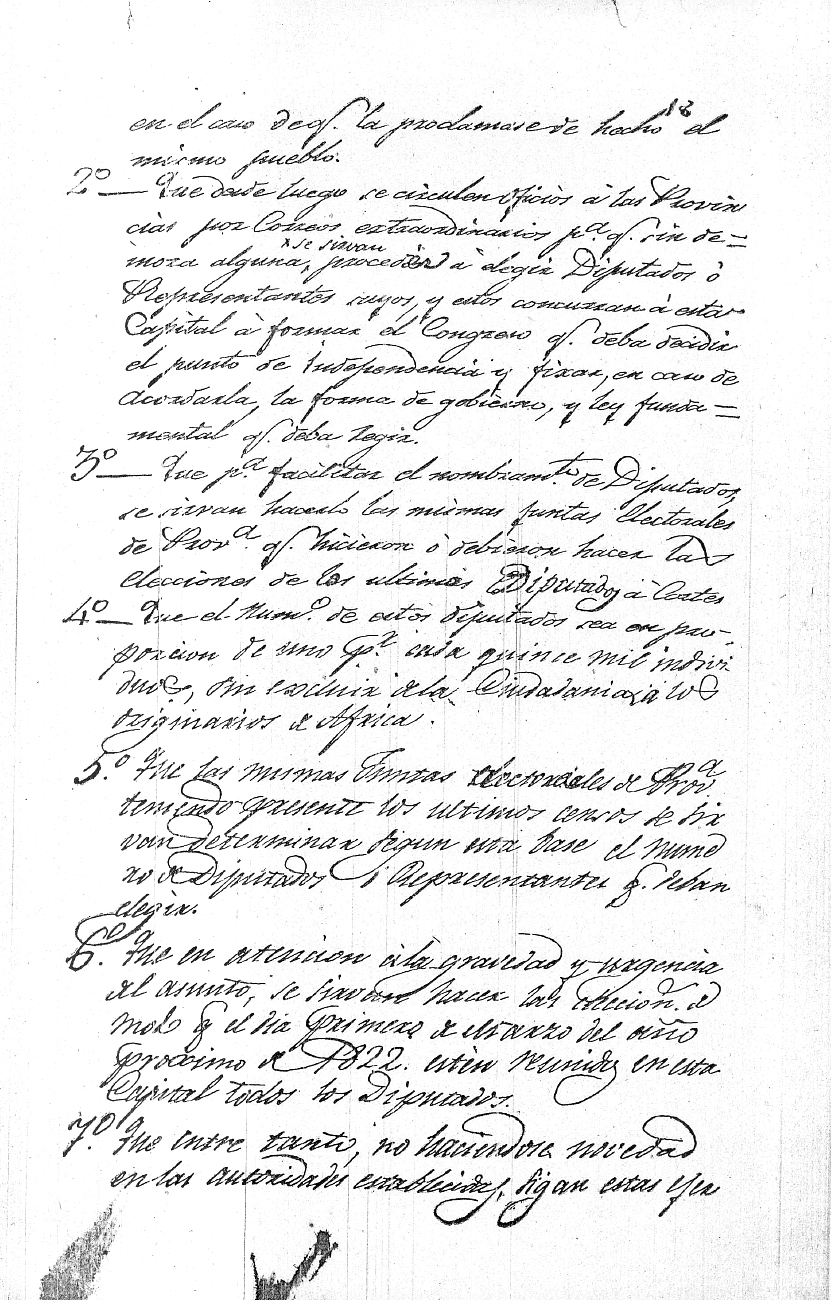 18
en el caso de q.e la proclamase de hecho el
mismo pueblo.
2º — Que desde luego se circulen oficios á las Provin
cias por Correos extraordinarios p.ª q.e sin de=
mora alguna, procedan á elegir Diputados ó
se sirvan
Representantes suyos, y estos concurran á esta
Capital á formar el Congreso q.e deba decidir
el punto de Independencia y fixar, en caso de
acordarla, la forma de gobierno, y ley funda=
mental q.e deba regir.
3º — Que p.ª facilitar el nombram.to de Diputados,
se sirvan hacerlo las mismas juntas Electorales
de Prov.ª q.e hicieron ó debieron hacer las
elecciones de los ultimos Diputados á Cortes
4º — Que el Num.º de estos diputados sea en pro-
porcion de uno p.r cada quince mil indivi
duos, sin excluir de la Ciudadania á los
originarios de Africa.
5.º Que las mismas Juntas electorales de Prov.ª
teniendo presente los ultimos censos se sir
van determinar segun esta base el nume
ro de Diputados ó Representantes q.e deban
elegir.
6.º Que en atencion á la gravedad y urgencia
del asunto, se sirvan hacer las eleccion.s de
modo q.e el dia primero de Marzo del año
proximo de 1822. esten reunidos en esta
Capital todos los Diputados.
7.º Que entre tanto, no haciendose novedad
en las autoridades establecidas, sigan estas exer